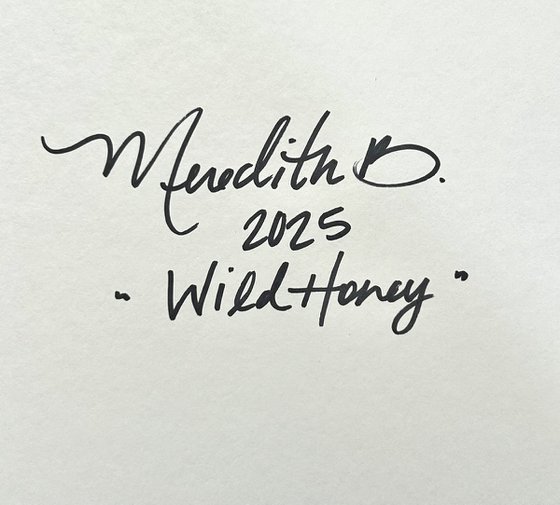 Meredith B.
2025
"Wild Honey"